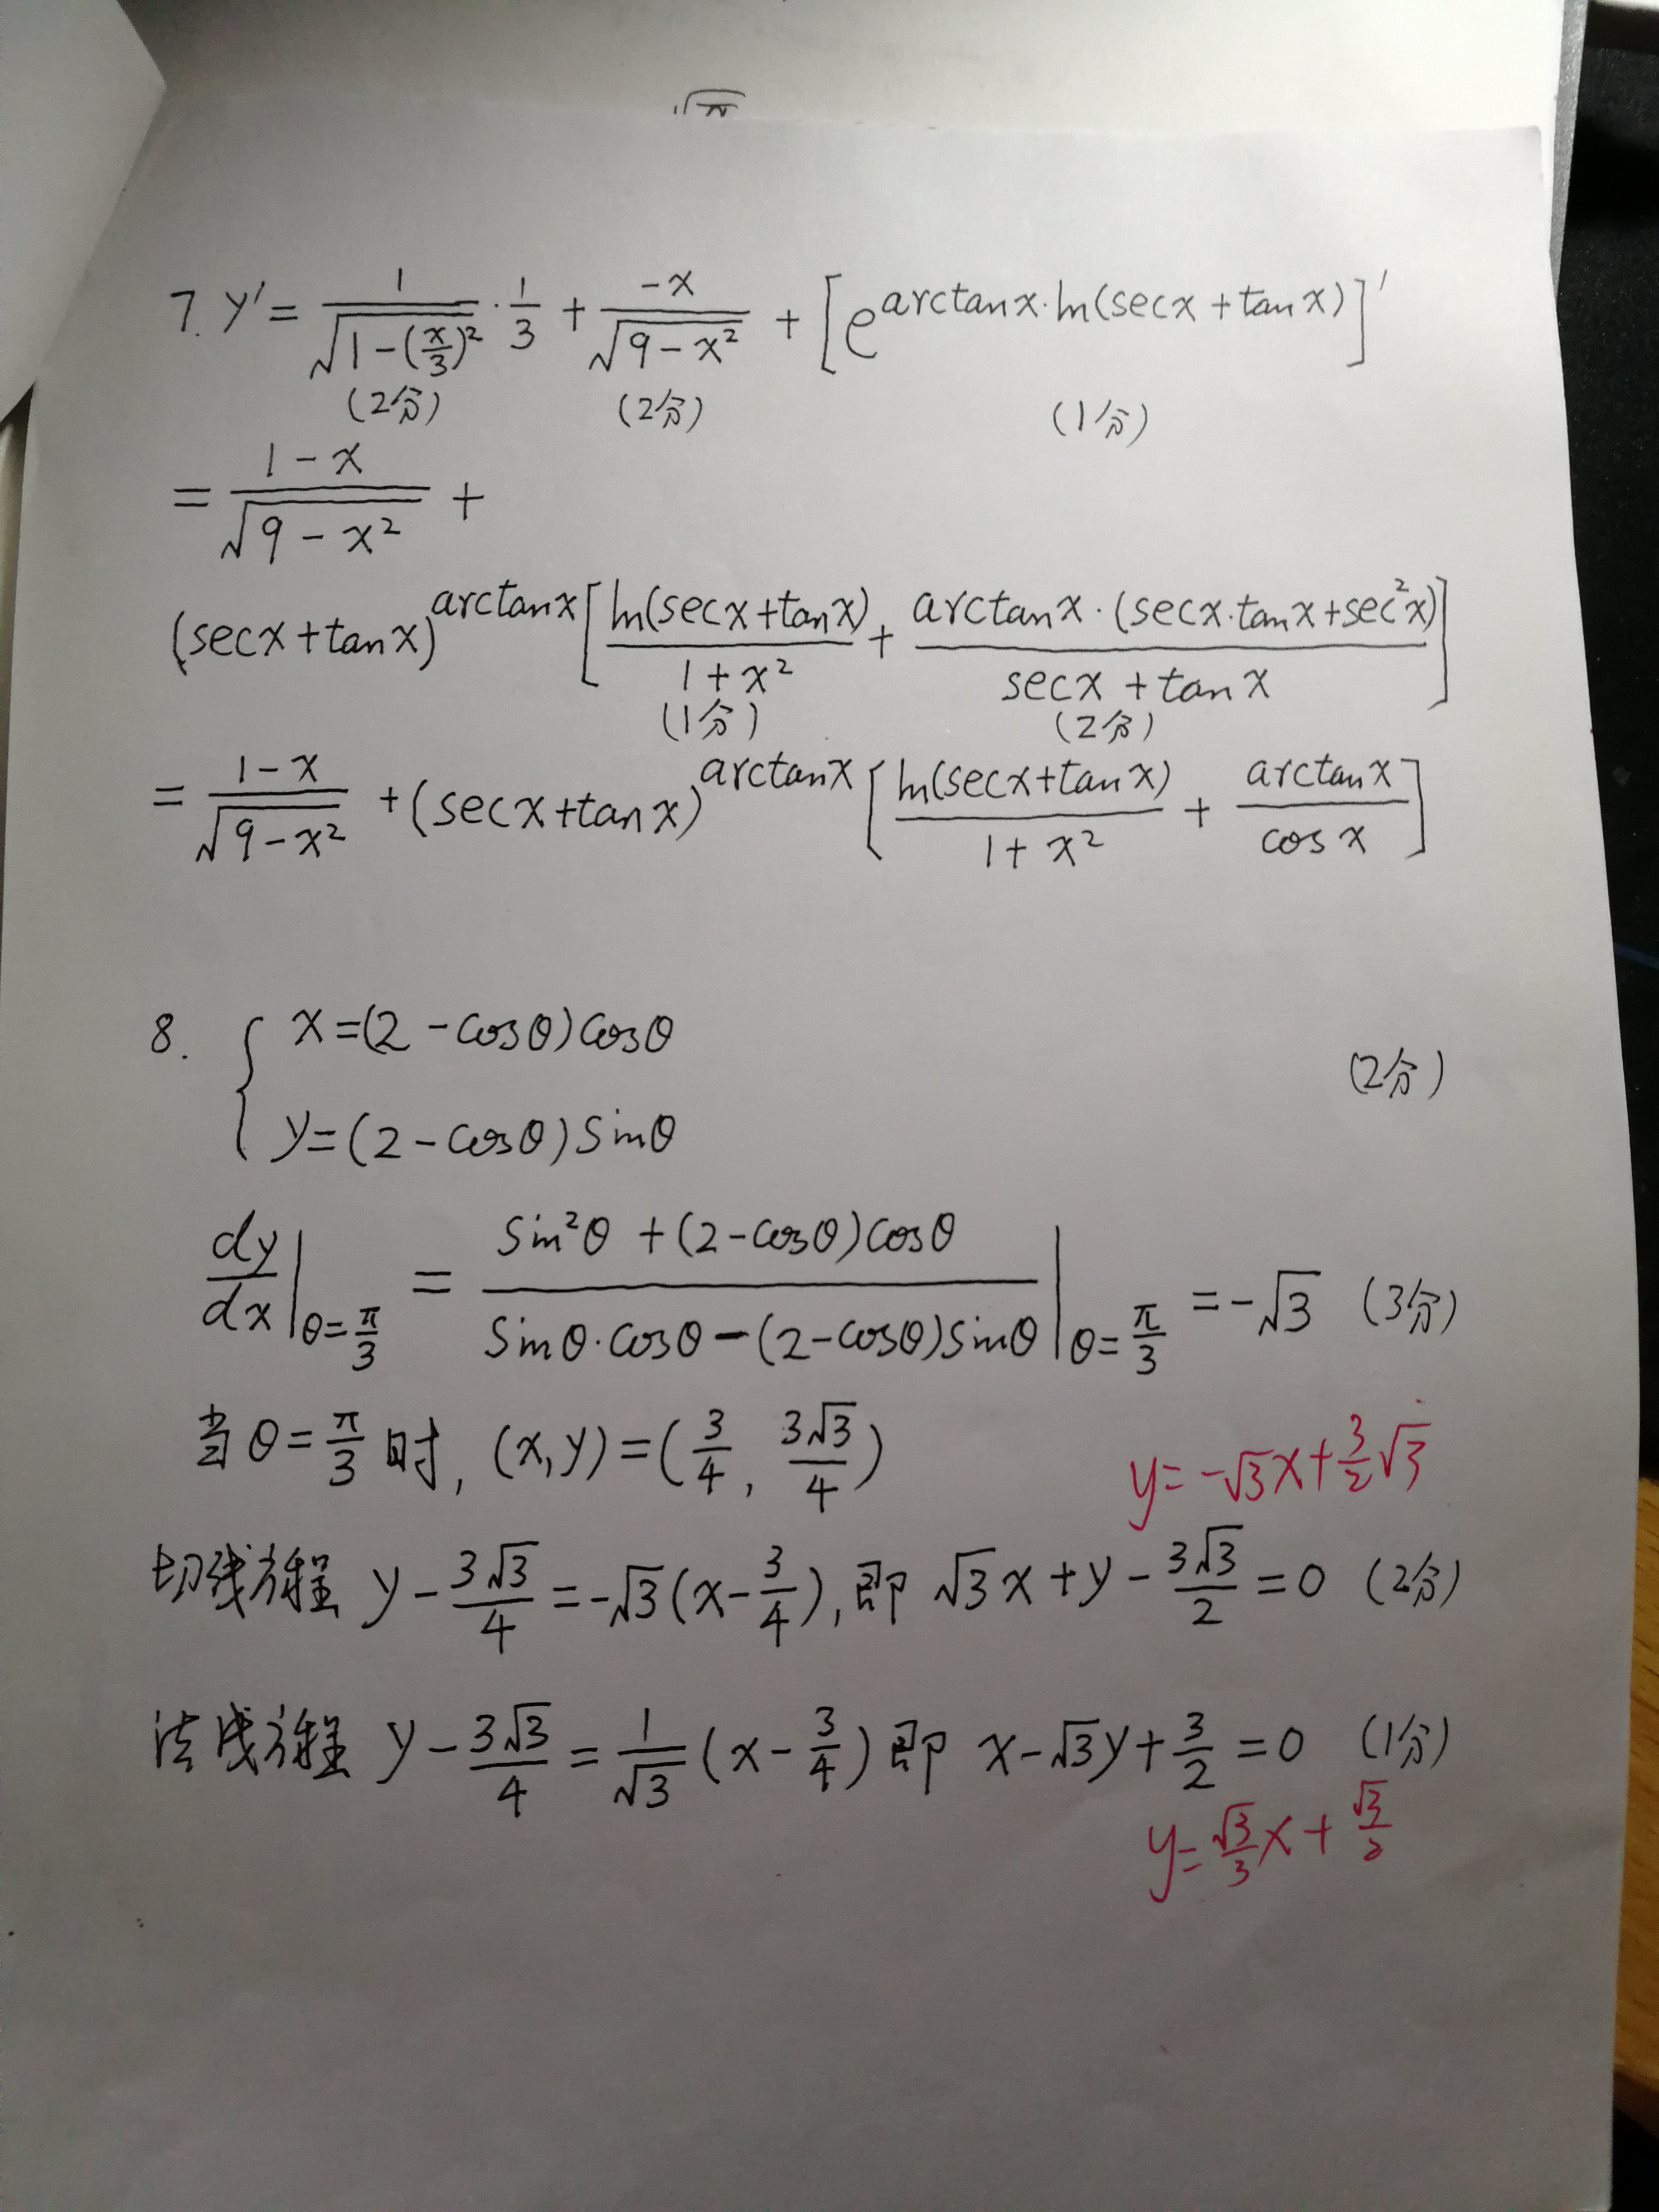 √π
7. y′ = 1/√(1-(x/3)²) · 1/3 + -x/√(9-x²) + [e^(arctanx·ln(secx+tanx))]′
(2分) (2分) (1分)
= (1-x)/√(9-x²) +
(secx+tanx)^arctanx [ln(secx+tanx)/(1+x²) + arctanx·(secx·tanx+sec²x)/(secx+tanx)]
(1分) (2分)
= (1-x)/√(9-x²) + (secx+tanx)^arctanx [ln(secx+tanx)/(1+x²) + arctanx/cosx]
8. { x=(2-cosθ)cosθ
(2分)
y=(2-cosθ)sinθ
dy/dx|θ=π/3 = (sin²θ+(2-cosθ)cosθ)/(sinθ·cosθ-(2-cosθ)sinθ)|θ=π/3 = -√3 (3分)
当θ=π/3时, (x,y)=(3/4, 3√3/4)
y=-√3x+3/2√3
切线方程 y-3√3/4=-√3(x-3/4), 即 √3x+y-3√3/2=0 (2分)
法线方程 y-3√3/4=1/√3(x-3/4) 即 x-√3y+3/2=0 (1分)
y=√3/3x+√3/2